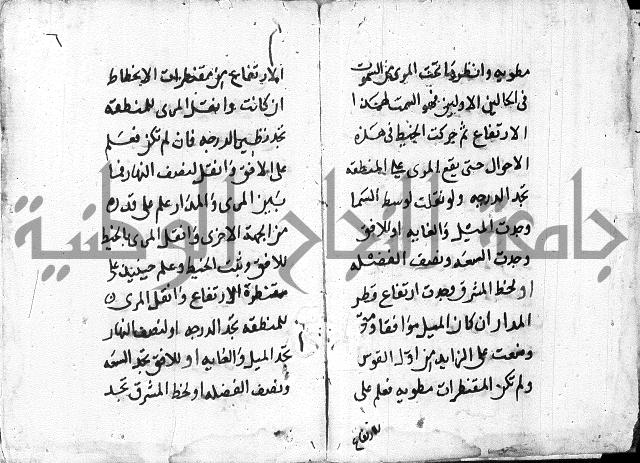 مطويه وانظر ما تحت المري من السموت
فى الحالين الاولين فهو السمت لهمكذا
الارتفاع ثم حركت الخيط فى هذه
الاحوال حتى يقع المرى على المنطقه
تجد الدرجه ولو نقلت لوسط السما
وجدت الميل والغايه او للافق
وجدت السعه ونصف الفضله
او لخط المشرق وجدت ارتفاع قطر
المدار ان كان الميل موافقا ومتى
وضعت على الزايد من اول القوس
ولم تكن المقنطرات مطويه فعلم على
للارتفاع
الارتفاع من مقنطرات الانحطاط
ان كانت وانقل المرى للمنطقه
تجد نظير الدرجه فان لم تكن فعلم
على الافق وانقل لنصف النهار فما
بين المرى والمدار علم على قدره
من الجهة الاخرى وانقل المرى بالخيط
للافق وثبت الخيط وعلم حينيذ على
مقنطرة الارتفاع وانقل المرى
للمنطقه تجد الدرجه او لنصف النهار
تجد الميل والغايه او للافق تجد السعه
ونصف الفضله او لخط المشرق تجد
جامعة النجاح الوطنية